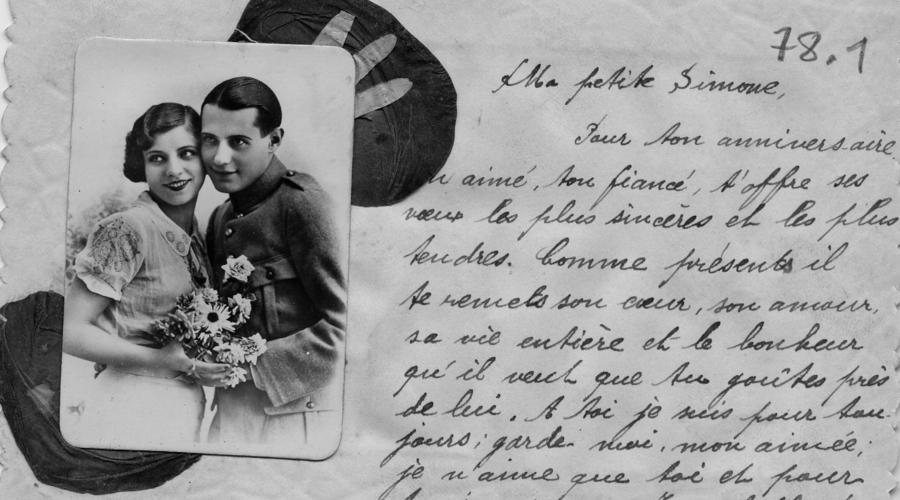 78.1
Ma petite Simone,
Pour ton anniversaire
aimé, ton fiancé, t'offre ses
vœux les plus sincères et les plus
tendres. Comme présents il
te remets son cœur, son amour,
sa vie entière et le bonheur
qu'il veut que tu goûtes près
de lui. A toi je suis pour tou-
jours; garde moi, mon aimée;
je n'aime que toi et pour